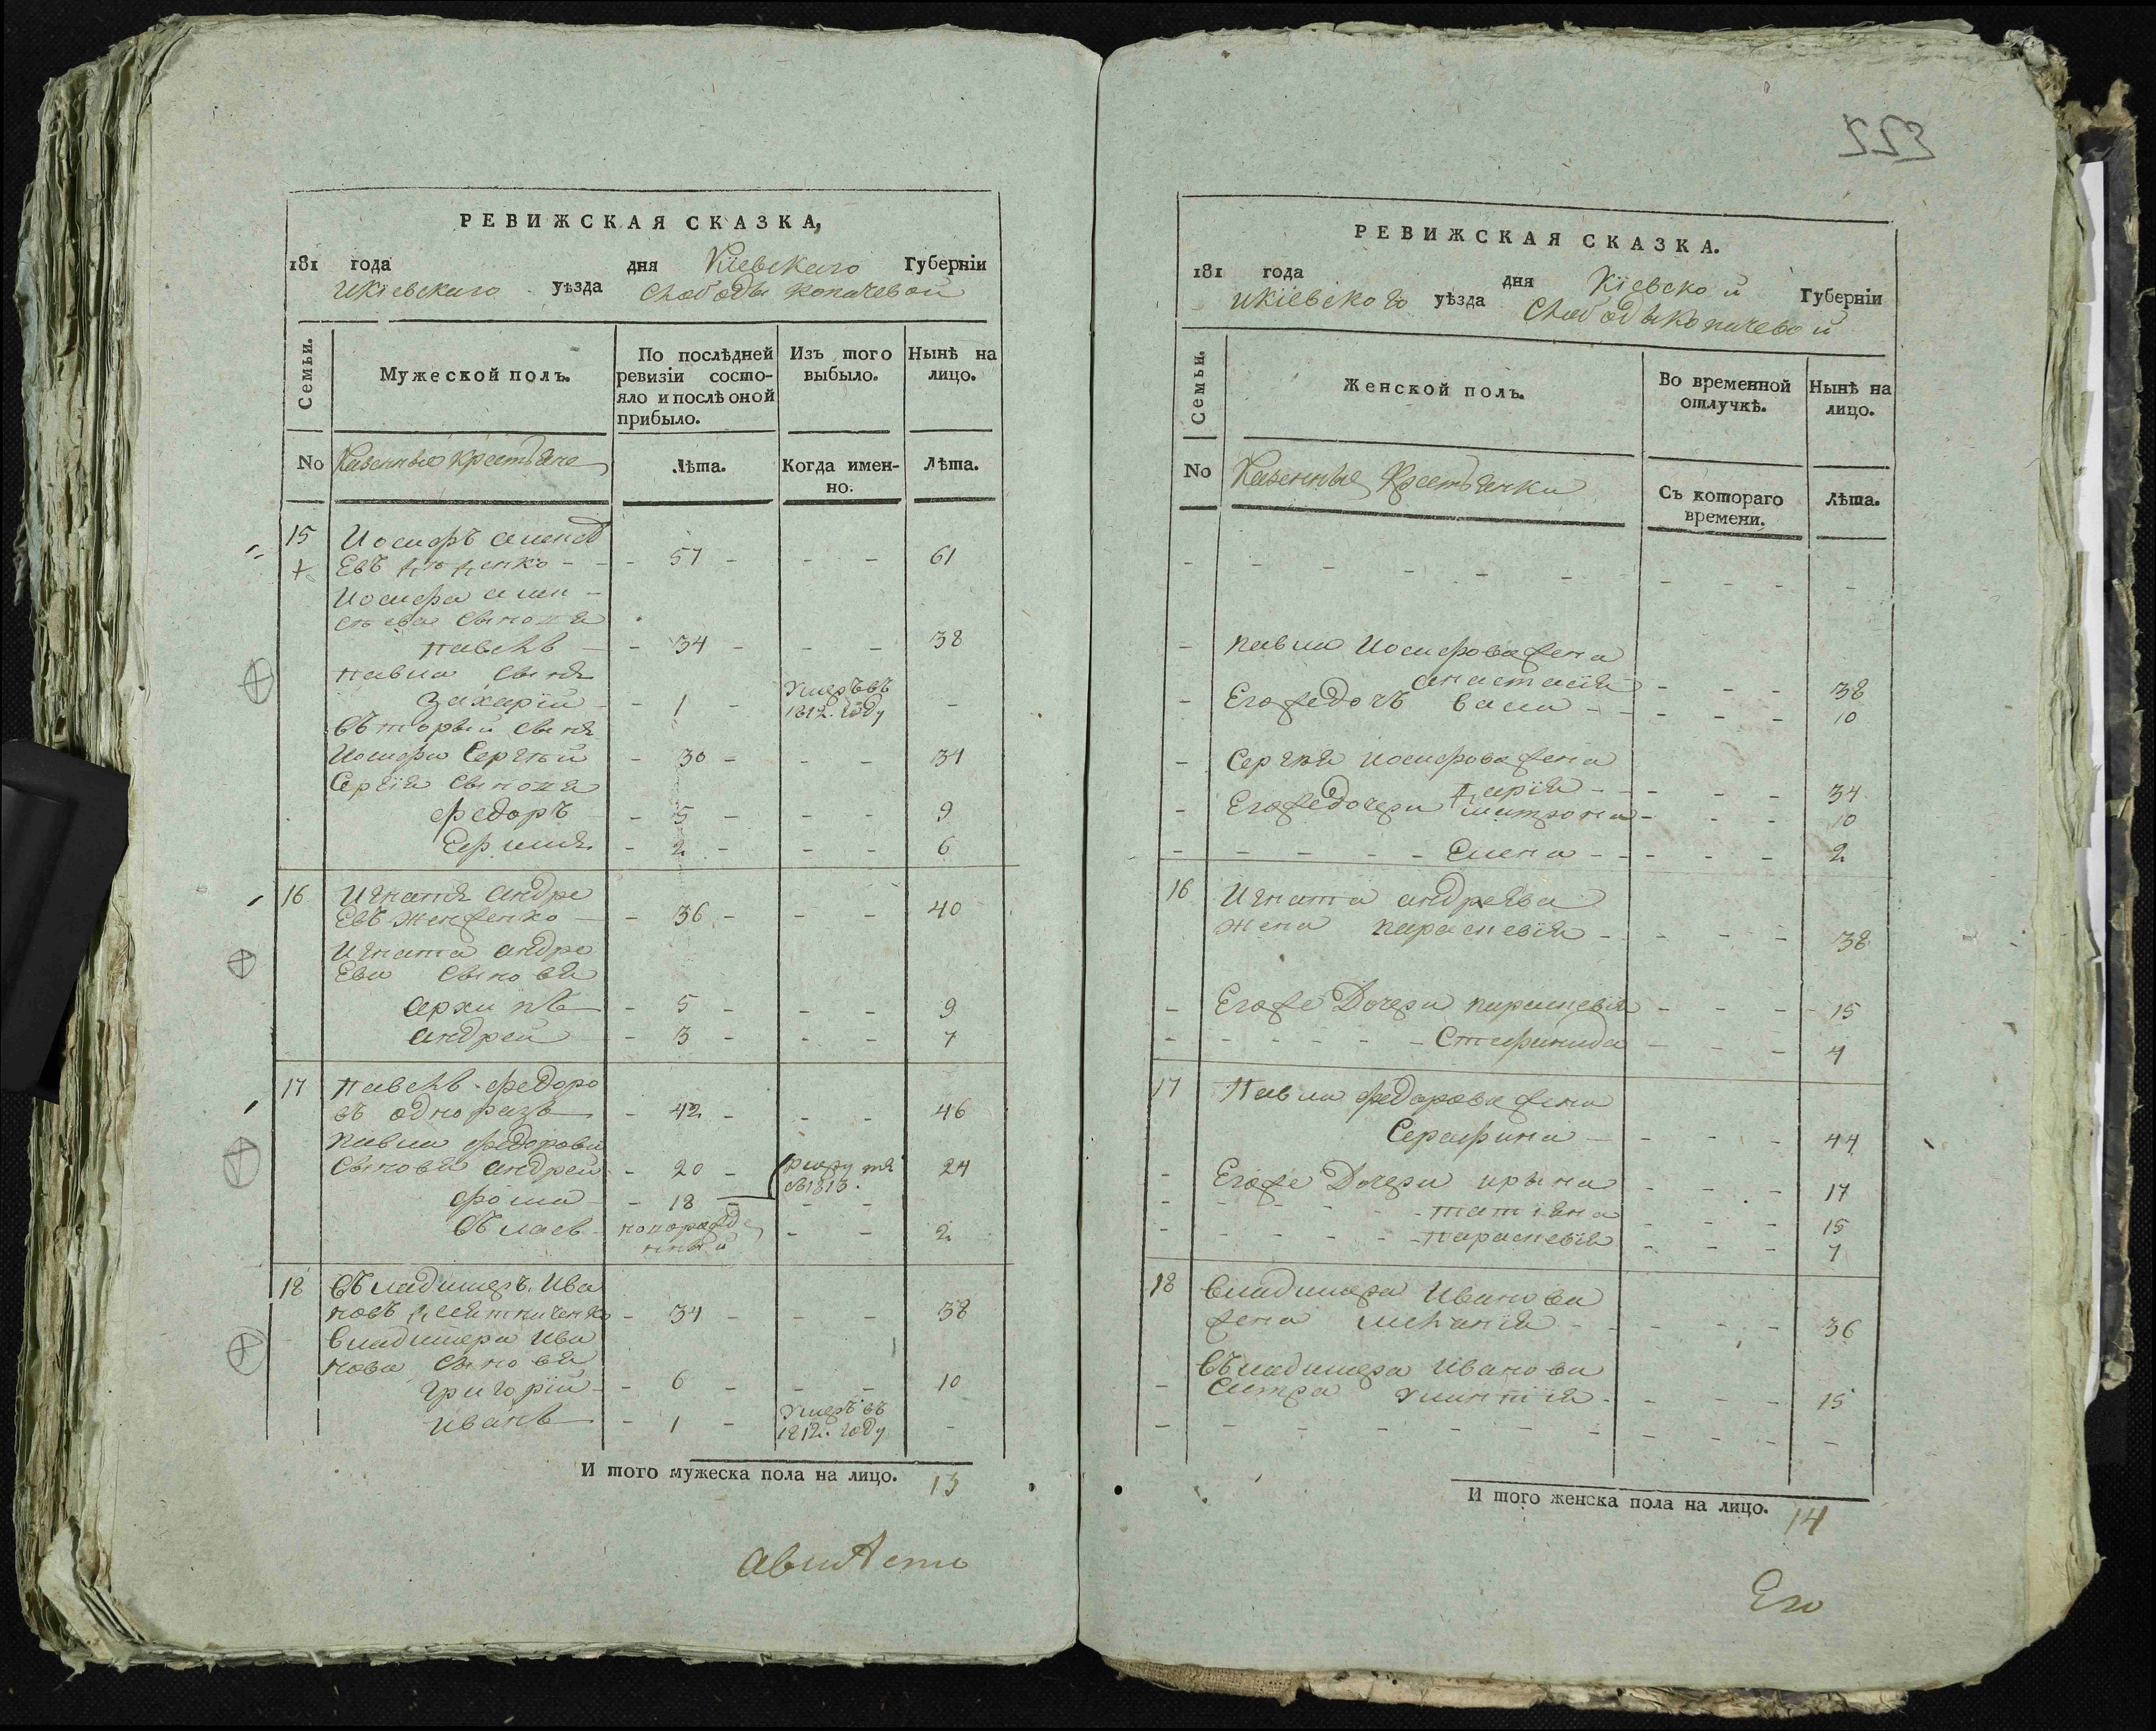 РЕВИЖСКАЯ СКАЗКА,
181 года дня Кіевскаго Губерніи
икіевскаго уѣзда слободы копачевой
Семьи.
Мужеской полъ.
По послѣдней ревизіи состо-
яло и послѣ оной
прибыло.
Изъ того
выбыло.
Нынѣ на
лицо.
No Казенные крестьяне
Лѣта.
Когда имен-
но.
Лѣта.
15 Иосифъ
евъ - - 57 - - - 61
Иосифа
сынови
павелъ - - 34 - - - 38
павла сынъ
захарій - 1 умеръ въ 1812. году -
въторый сынъ
Иосифа Сергѣй - 30 - - - 34
Сергія сынови
федоръ - 5 - - - 9
Ефимъ - 2 - - - 6
16 Игнатъ андре
евъ - 36 - - - 40
Игната андре
ева сыновя
архипъ - 5 - - - 9
андрей - 3 - - - 7
17 павелъ федоро
въ однороゃзъ - 42 - - - 46
павла федорова
сыновя андрей - 20 - рекрутъ в1813. 24
фома - 18 - - -
Въласъ новорожде
нный - - 2
18 Въладимеръ. Ива
новъ - 34 - - - 38
владимера ива
нова сыновя
григорій - - 6 - - - 10
иванъ - 1 - умеръ въ 1812. году -
И того мужеска пола на лицо. 13
222
РЕВИЖСКАЯ СКАЗКА.
181 года дня Кіевской Губерніи
икіевского уѣзда слободы копачевой
Семьи.
Женской полъ.
Во временной
отлучкѣ.
Нынѣ на
лицо.
No Казенные крестьянки
Съ котораго
времени.
Лѣта.
- павла Иосифова жена
анастасія - - - 38
- Егожедочъ - - - 10
- Сергѣя иосифова жена
дарія - - - 34
- Егожедочери матрона - - - 10
- - - - - Елена - - - 2
16 Игната андреява
жена параскевія - - - 38
- Егоже Дочери параскевія - - - 15
- - - - - - - - 4
17 Павла федорова жена
Серафина - - - - 44
- Егоже Дочери ирына - - - 17
- - - - - татіяна - - - 15
- - - - - параскевія - - - 7
18 владимера Иванова
жена меланія - - - - 36
Въладимера Иванова
- Сестра - - - 15
И того женска пола на лицо. 14
Его